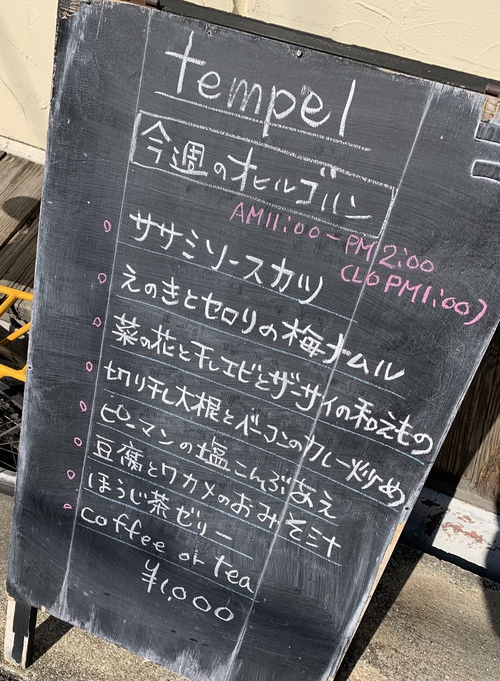 tempel
今週のオヒルゴハン
AM11:00-PM2:00
(LO PM1:00)
ササミソースカツ
えのきとセロリの梅ナムル
菜の花と干しエビとザーサイの和えもの
切り干し大根とベーコンのカレー炒め
ピーマンの塩こんぶあえ
豆腐とワカメのおみそ汁
ほうじ茶ゼリー
coffee or tea
¥1,000